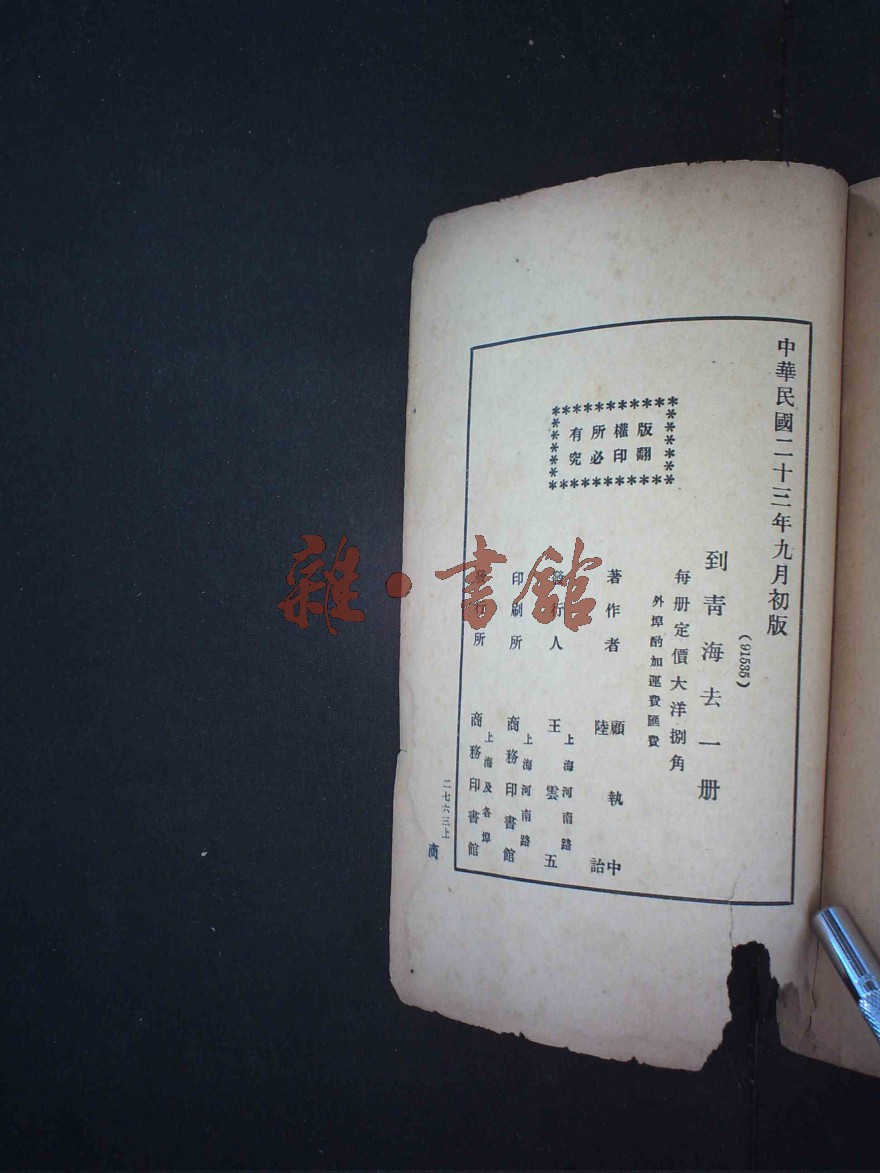 中華民國二十三年九月初版
(91535)
到青海去一册
每册定價大洋捌角
外埠酌加運費匯費
版權所有
翻印必究
著作者 顧執中 陸詒
發行人 王雲五
上海河南路
印刷所 商務印書館
上海河南路
發行所 商務印書館
上海及各埠
二七六三上
商
雜·書館